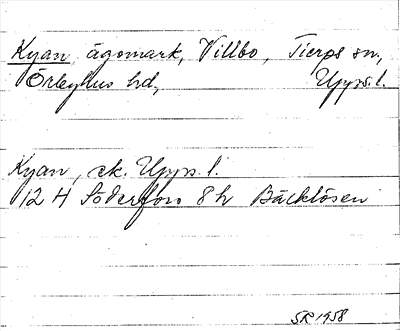 Kyan, ägomark, Villbo, Tierps sn,
Örbyhus hd, Upps. l.
Kyan, ek. Upps. l.
12 H Söderfors 8 h Bäcklösen
SR 1958